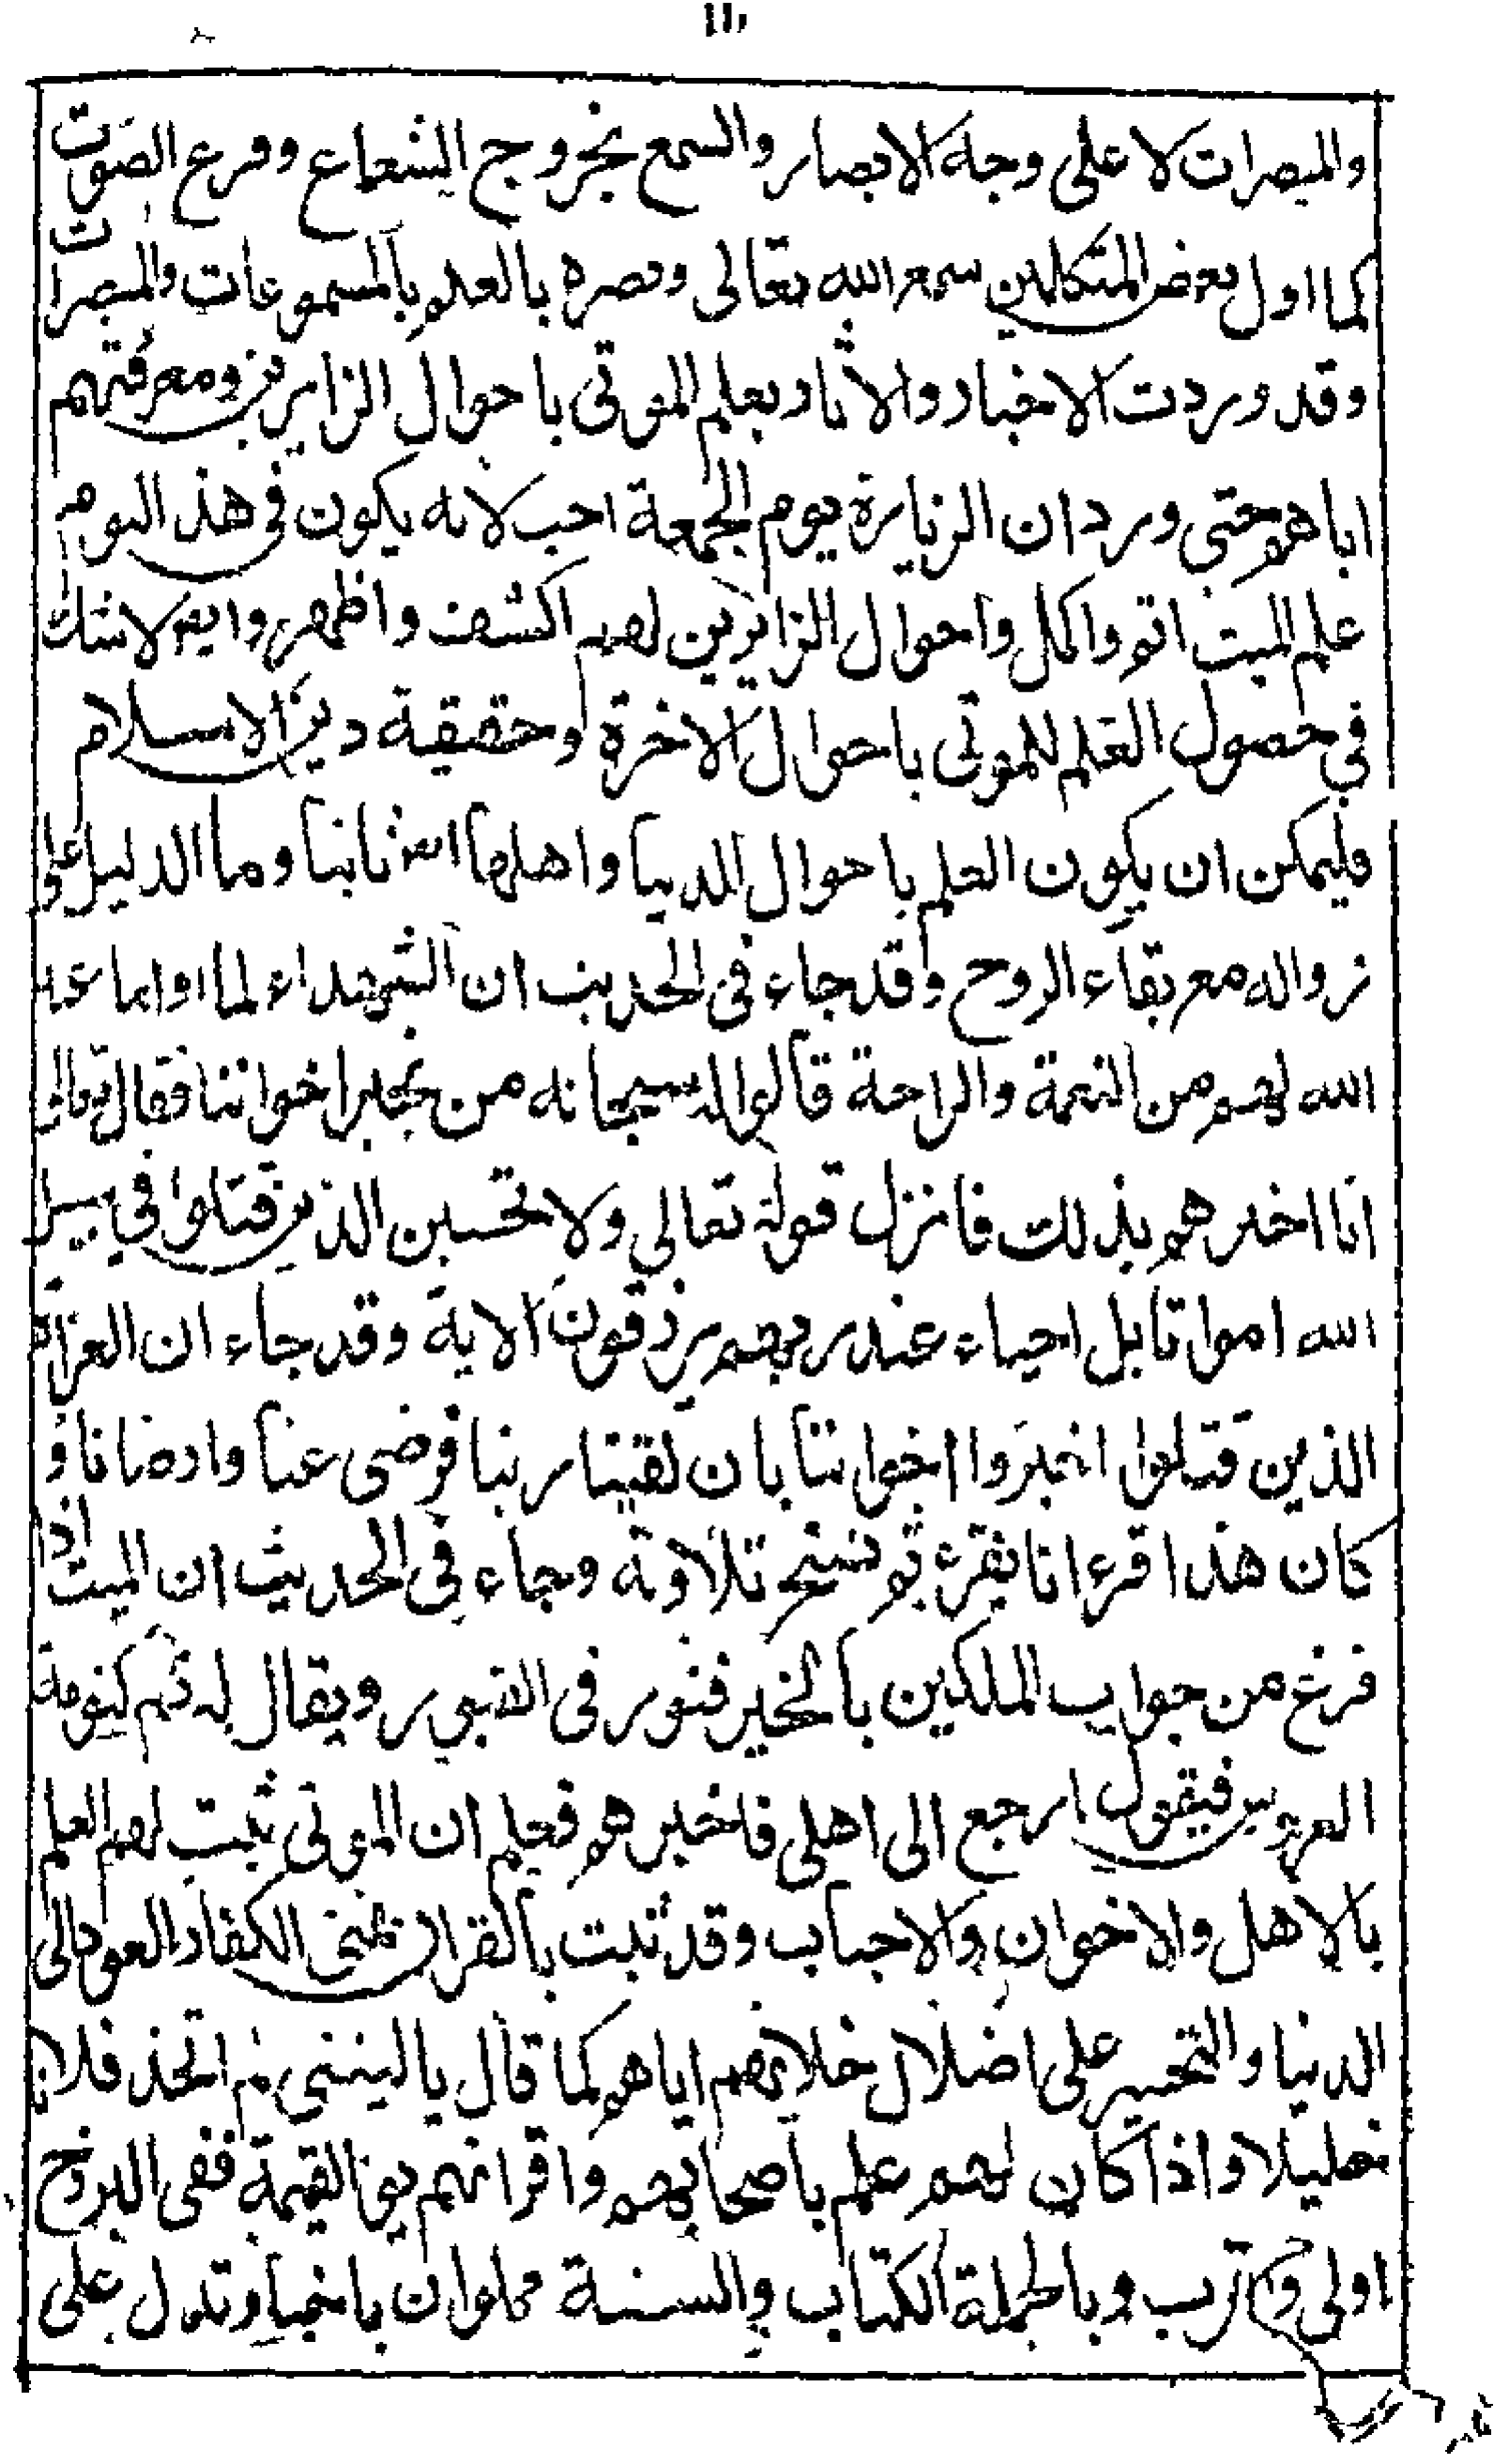 والمبصرات لا على وجه الابصار والسمع بخروج الشعاع وقرع الصوت
كما اول بعض المتكلمين سمع الله تعالى وبصره بالعلم بالمسموعات والمبصرات
وقد وردت الاخبار والاثار بعلم الموتى باحوال الزايرين ومعرفتهم
اياهم حتى ورد ان الزيارة يوم الجمعة احب لانه يكون في هذ اليوم
علم الميت اتم واكمل واحوال الزايرين لهم اكشف واظهر وايض لا شك
في حصول العلم للموتى باحوال الاخرة وحقيقة دين الاسلام
فليمكن ان يكون العلم باحوال الدنيا واهلها ايض ثابتا وما الدليل على
زواله مع بقاء الروح وقد جاء في الحديث ان الشهداء لما اوا ما عند
الله لهم من النعمة والراحة قالوا لله سبحانه من يخبر اخواننا فقال تعالى
انا اخبرهم بذلك فانزل قوله تعالى ولا تحسبن الذين قتلوا في سبيل
الله امواتا بل احياء عند ربهم يرزقون الاية وقد جاء ان القراء
الذين قتلوا اخبروا اخواننا بان لقينا ربنا فرضى عنا وارضانا و
كان هذا قرءانا يقرء ثم نسخ تلاوته وجاء في الحديث ان الميت اذا
فرغ من جواب الملكين بالخير فنور في القبور ويقال له نم كنومة
العروس فيقول ارجع الى اهلى فاخبرهم فعلم ان الموتى ثبت لهم العلم
بالاهل والاخوان والاحباب وقد ثبت بالقران تمنى الكفار العود الى
الدنيا والتحسر على اضلال خلانهم اياهم كما قال يا ليتنى لم اتخذ فلانا
خليلا واذا كان لهم علم باصحابهم واقرانهم يوم القيمة ففى البرزخ
اولى واقرب وبالجملة الكتاب والسنة مملوان باخبار تدل على